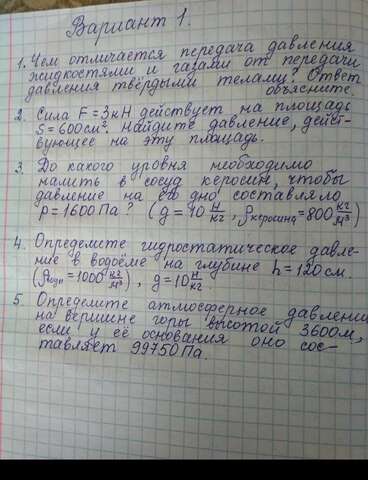 Вариант 1.
1. Чем отличается передача давления
жидкостями и газами от передачи
давления твёрдыми телами? Ответ
объясните.
2. Сила F=3кН действует на площадь
S=600см². Найдите давление, дейст-
вующее на эту площадь.
3. До какого уровня необходимо
налить в сосуд керосин, чтобы
давление на его дно составляло
p=1600Па? (g=10 Н/кг, ρкеросина=800 кг/м³)
4. Определите гидростатическое давле-
ние в водоёме на глубине h=120см.
(ρводы=1000 кг/м³), g=10 Н/кг.
5. Определите атмосферное давление
на вершине горы высотой 3600м,
если у её основания оно сос-
тавляет 99750Па.